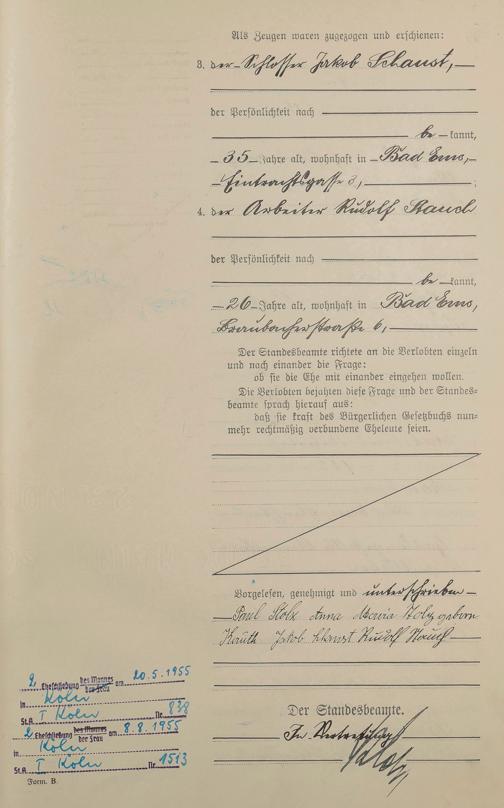 Als Zeugen waren zugezogen und erschienen:
3. der Schlosser Jakob Schaust,
der Persönlichkeit nach
be kannt,
35 Jahre alt, wohnhaft in Bad Ems,
Eintrachtgasse 3,
4. der Arbeiter Rudolf Stauch
der Persönlichkeit nach
be kannt,
26 Jahre alt, wohnhaft in Bad Ems,
Braubacherstraße 6,
Der Standesbeamte richtete an die Verlobten einzeln
und nach einander die Frage:
ob sie die Ehe mit einander eingehen wollen.
Die Verlobten bejahten diese Frage und der Standes-
beamte sprach hierauf aus:
daß sie kraft des Bürgerlichen Gesetzbuchs nun-
mehr rechtmäßig verbundene Eheleute seien.
Vorgelesen, genehmigt und unterschrieben
Paul Stolz Anna Maria Stolz geborn
Kauth Jakob Schaust Rudolf Stauch
Der Standesbeamte.
In Vertretung
2. Eheschließung des Mannes der Frau am 20.5.1955
in Köln
St.A. I Köln Nr. 838
2. Eheschließung des Mannes der Frau am 8.8.1955
in Köln
St.A. I Köln Nr. 1513
Form. B.